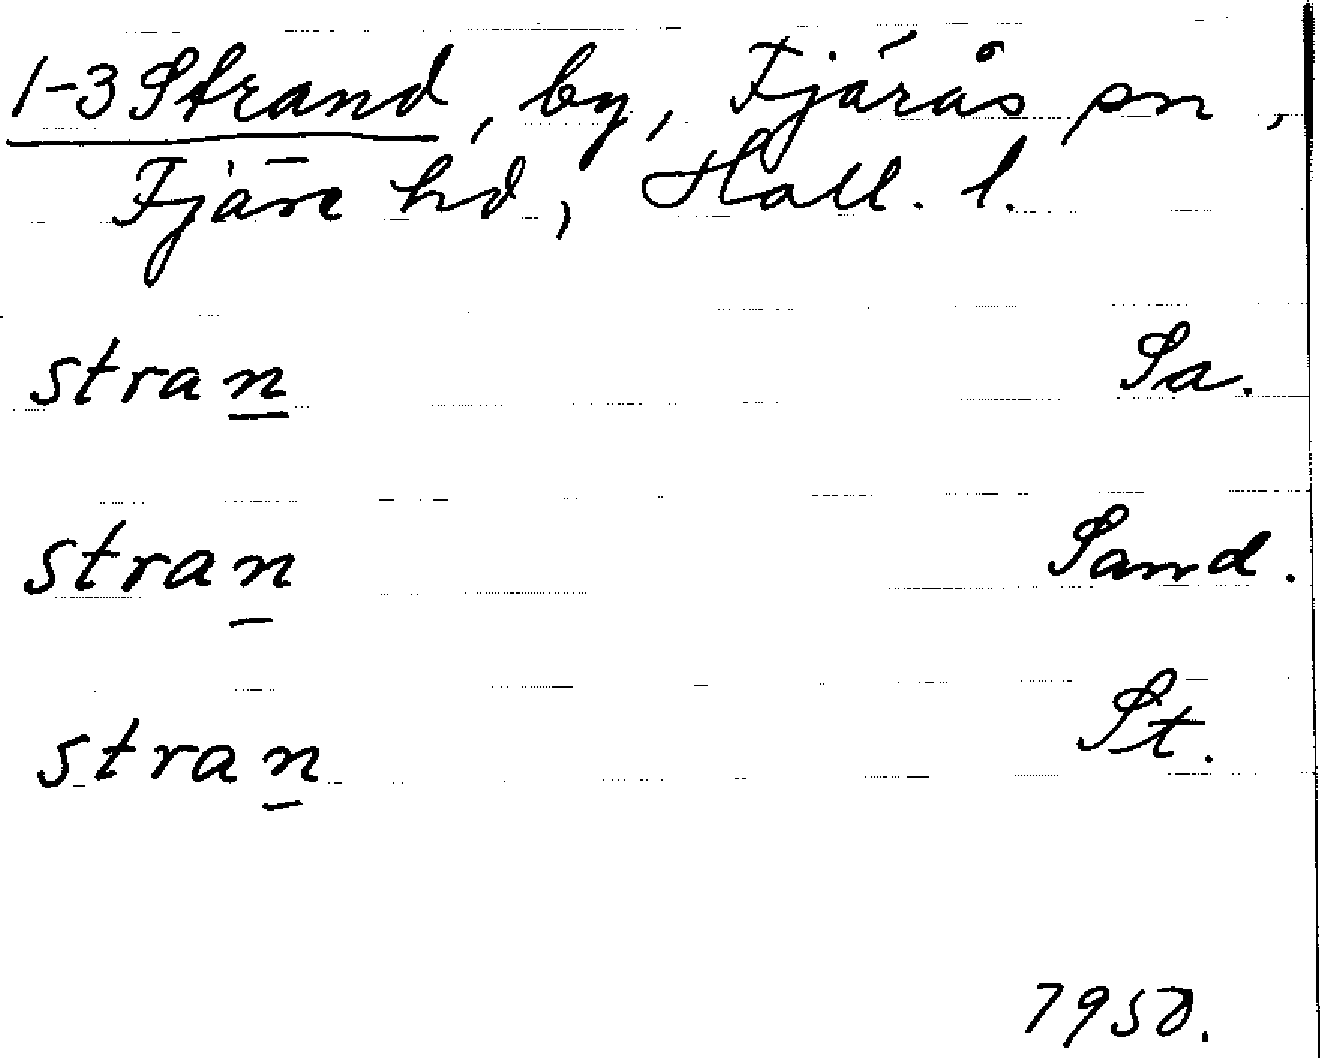 1-3 Strand, by, Fjärås sn,
Fjäre hd, Hall. l.
stran Sa.
stran Sand.
stran St.
1950.